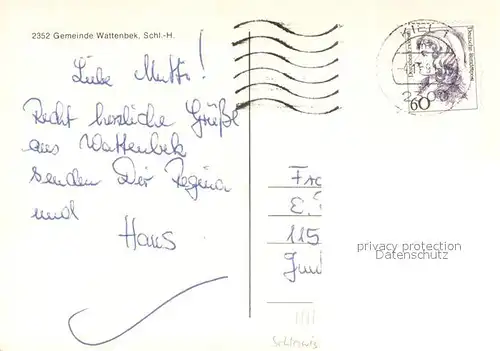 2352 Gemeinde Wattenbek, Schl.-H.
Liebe Mutti!
Recht herzliche Grüße
aus Wattenbek
senden Dir Regina
und
Hans
KIEL 1
2300
Deutsche Bundespost
60
E.
115
privacy protection
Datenschutz